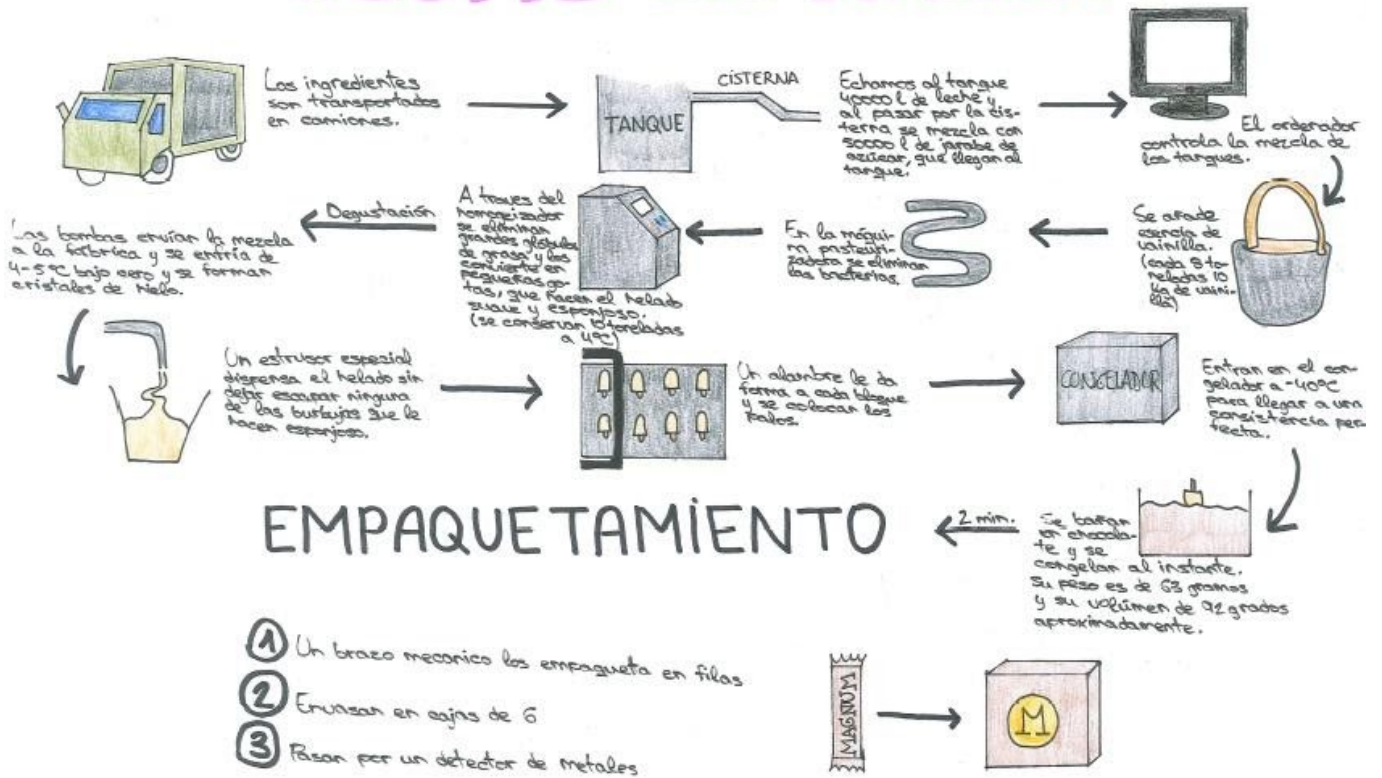 Los ingredientes
son transportados
en camiones.
TANQUE
CISTERNA
Echamos al tanque
40000 l de leche y
al pasar por la cis-
terna se mezcla con
50000 l de jarabe de
azúcar, que llegan al
tanque.
El ordenador
controla la mezcla de
los tanques.
Se añade
esencia de
vainilla.
(cada 8 to-
neladas 10
kg de vaini-
lla)
En la máqui-
na pasteuri-
zadora se eliminan
las bacterias.
A traves del
homogeizador
se eliminan
grandes glóbulos
de grasa y los
convierte en
pequeñas go-
tas, que hacen el helado
suave y esponjoso.
(se conservan toneladas
a 4ºC)
Degustación
Las bombas envían la mezcla
a la fábrica y se enfría de
4-5ºC bajo cero y se forman
cristales de hielo.
Un estrusor espezial
dispensa el helado sin
dejar escapar ninguna
de las burbujas que le
hacen esponjoso.
Un alambre le da
forma a cada bloque
y se colocan los
palos.
CONGELADOR
Entran en el con-
gelador a -40ºC
para llegar a una
consistencia per-
fecta.
Se bañan
en chocola-
te y se
congelan al instante.
su peso es de 63 gramos
y su volúmen de 92 grados
aproximadamente.
2 min.
EMPAQUETAMIENTO
1 Un brazo mecanico los empaqueta en filas
2 Envasan en cajas de 6
3 Pasan por un detector de metales
MAGNUM
M